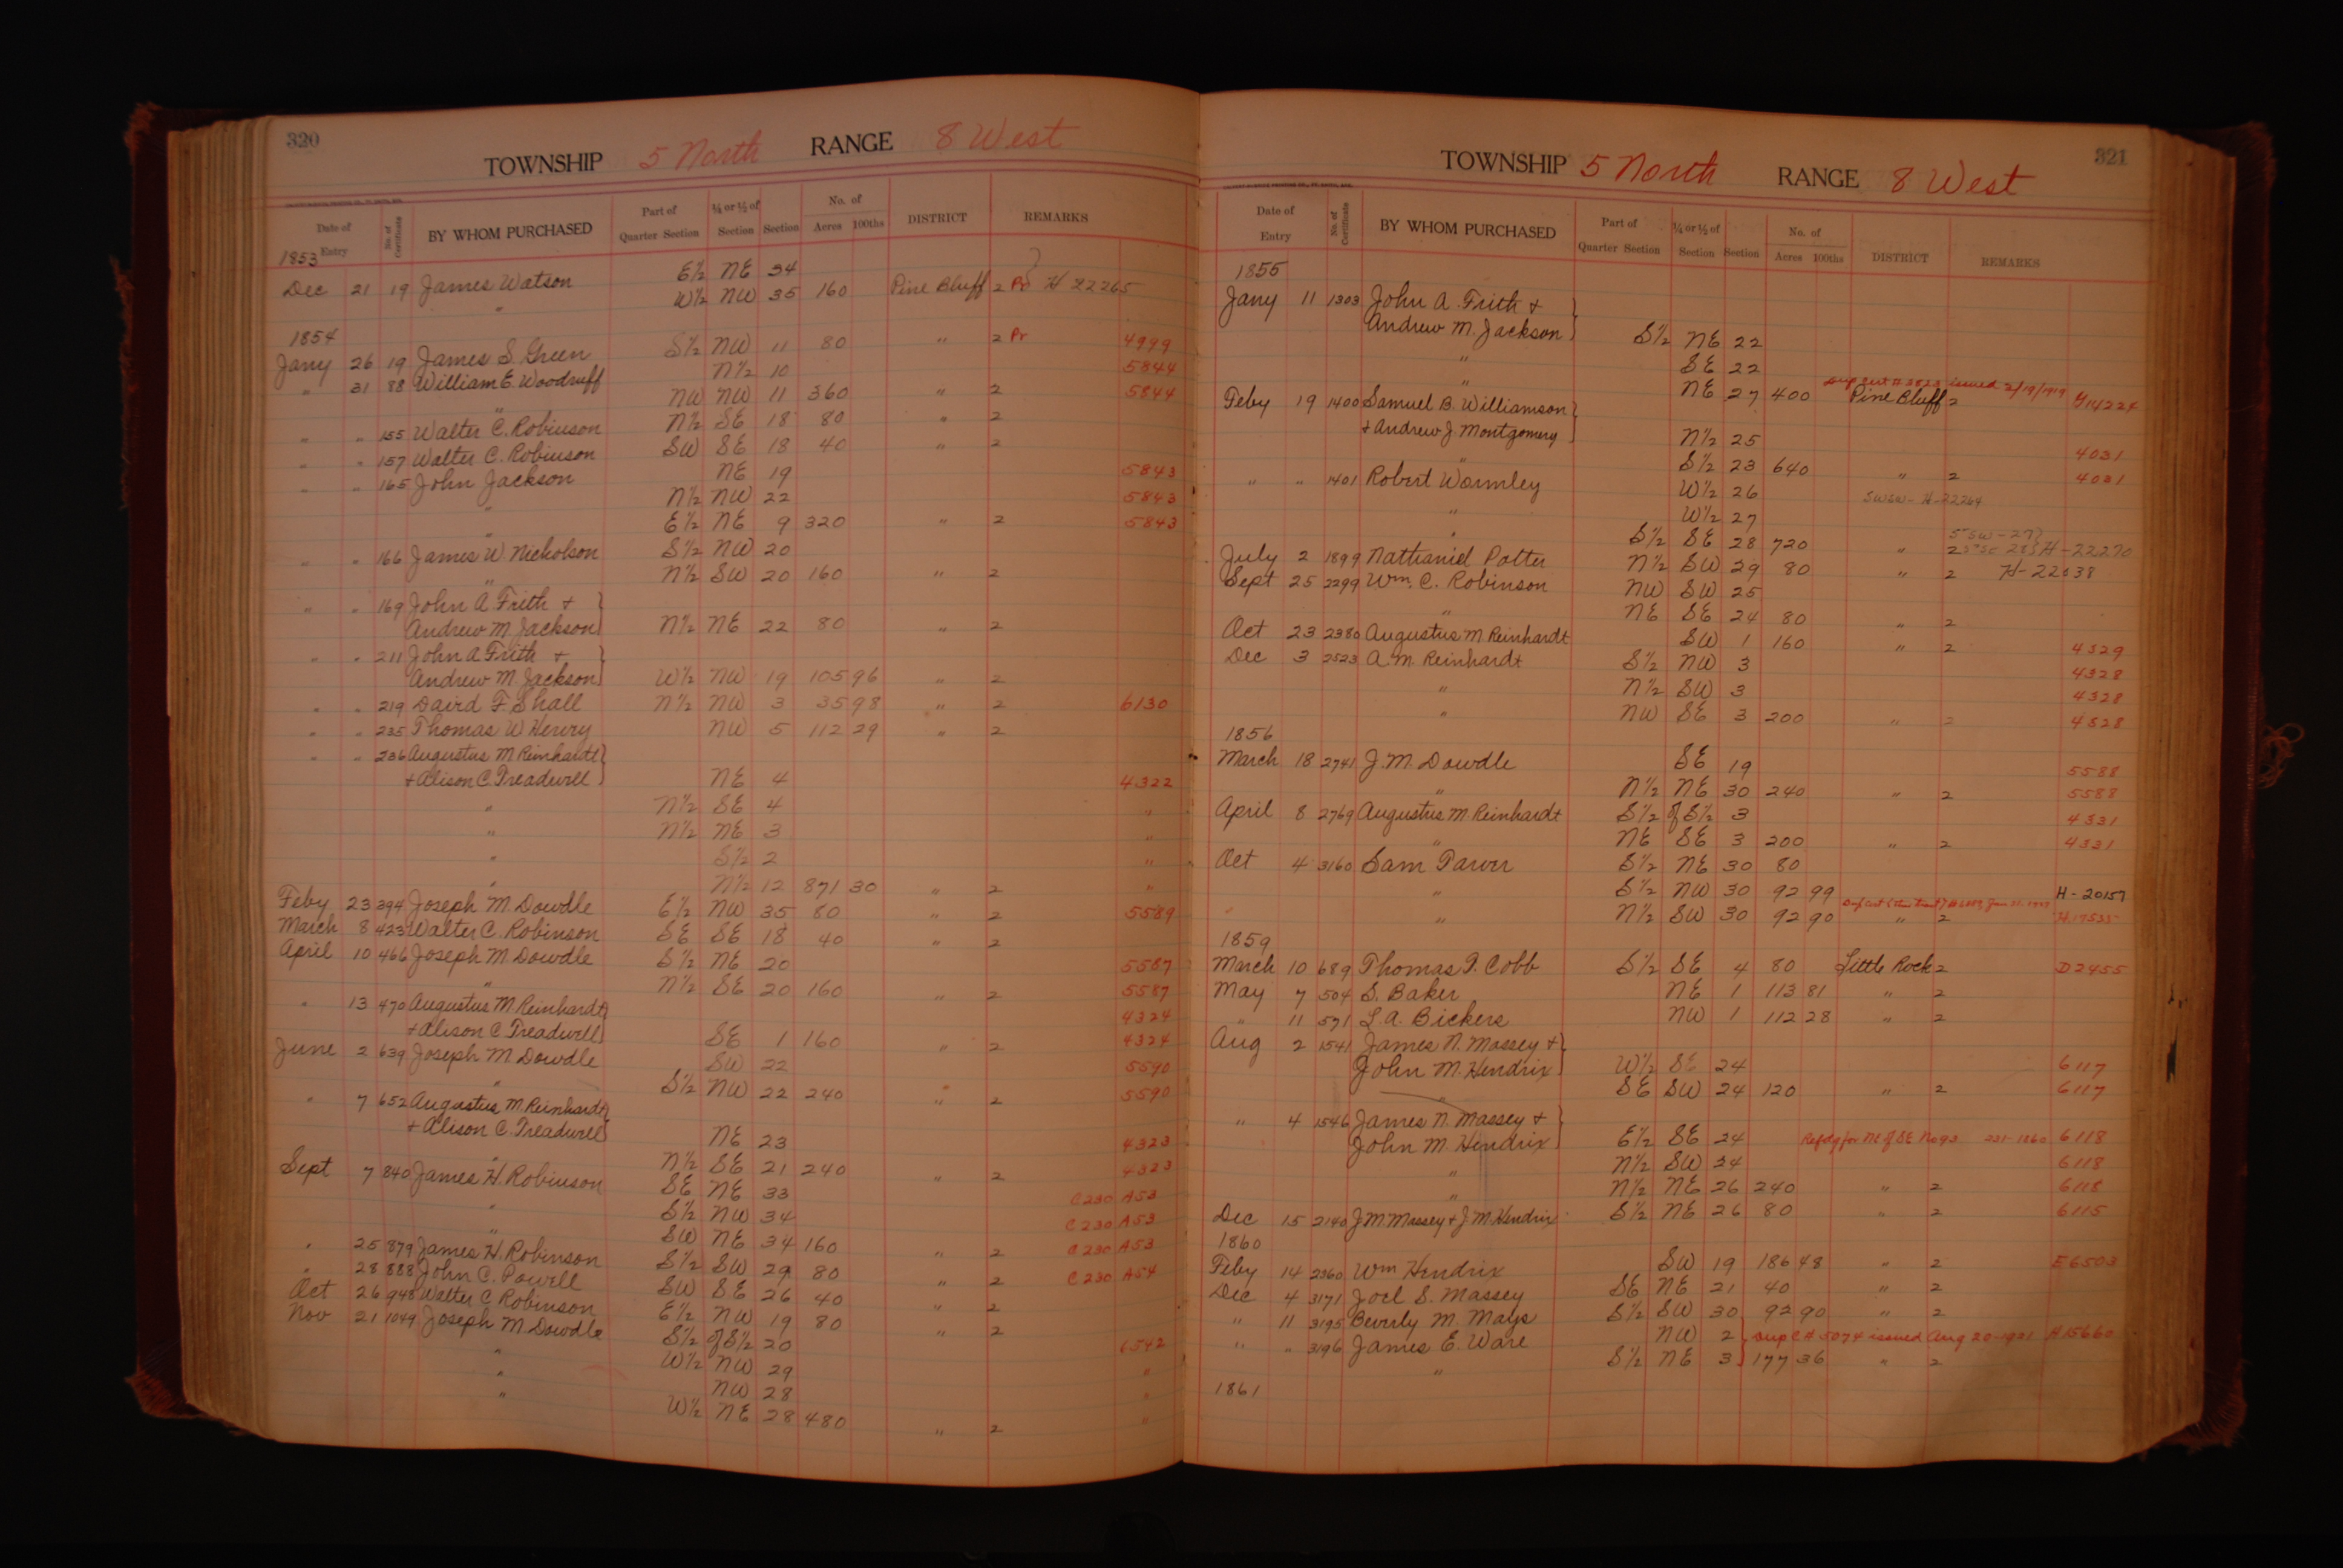 320
TOWNSHIP 5 North RANGE 8 West
Date of Entry No. of Certificate BY WHOM PURCHASED Part of Quarter Section ¼ or ½ of Section Section No. of Acres 100ths DISTRICT REMARKS
1853
Dec 21 19 James Watson E½ NE 34
" W½ NW 35 160 Pine Bluff 2 Pr H 22265
1854
Jany 26 19 James S. Green S½ NW 11 80 " 2 Pr 4999
" 31 88 William E. Woodruff N½ 10 5844
" NW NW 11 360 " 2 5844
" " 155 Walter C. Robinson N½ SE 18 80 " 2
" " 157 Walter C. Robinson SW SE 18 40 " 2
" " 165 John Jackson NE 19 5843
" N½ NW 22 5843
" E½ NE 9 320 " 2 5843
" " 166 James W. Nicholson S½ NW 20
" N½ SW 20 160 " 2
" " 169 John A. Frith +
Andrew M. Jackson N½ NE 22 80 " 2
" " 211 John A Frith +
Andrew M. Jackson W½ NW 19 105 96 " 2
" " 219 David F. Shall N½ NW 3 35 98 " 2 6130
" " 235 Thomas W. Henry NW 5 112 29 " 2
" " 236 Augustus M. Reinhardt
+ Alison C. Treadwell NE 4 4322
" N½ SE 4 "
" N½ NE 3 "
" S½ 2 "
" N½ 12 871 30 " 2 "
Feby 23 394 Joseph M. Dowdle E½ NW 35 80 " 2 5589
March 8 423 Walter C. Robinson SE SE 18 40 " 2
April 10 466 Joseph M. Dowdle S½ NE 20 5587
" N½ SE 20 160 " 2 5587
" 13 470 Augustus M. Reinhardt 4324
+ Alison C. Treadwell SE 1 160 " 2 4324
June 2 639 Joseph M. Dowdle SW 22 5590
" S½ NW 22 240 " 2 5590
" 7 652 Augustus M. Reinhardt
+ Alison C. Treadwell NE 23 4323
" N½ SE 21 240 " 2 4323
Sept 7 840 James H. Robinson SE NE 33 C230 A53
" S½ NW 34 C230 A53
" SW NE 34 160 " 2 C230 A53
" 25 879 James H. Robinson S½ SW 29 80 " 2 C230 A54
" 28 888 John C. Powell SW SE 26 40 " 2
Oct 26 948 Walter C Robinson E½ NW 19 80 " 2
Nov 21 1049 Joseph M. Dowdle S½ of S½ 20 6542
" W½ NW 29 "
" NW 28 "
" W½ NE 28 480 " 2 "
321
TOWNSHIP 5 North RANGE 8 West
Date of Entry No. of Certificate BY WHOM PURCHASED Part of Quarter Section ¼ or ½ of Section Section No. of Acres 100ths DISTRICT REMARKS
1855
Jany 11 1303 John A. Frith +
Andrew M. Jackson S½ NE 22
" SE 22
" NE 27 400 Pine Bluff 2 issued 2/19/1919
Feby 19 1400 Samuel B. Williamson
+ Andrew J. Montgomery N½ 25 4031
" S½ 23 640 " 2 4031
" " 1401 Robert Wormley W½ 26 SWSW - H-22264
" W½ 27
" S½ SE 28 720 " 2 H-22270
July 2 1899 Nathaniel Potter N½ SW 29 80 " 2 H-22038
Sept 25 2299 Wm. C. Robinson NW SW 25
" NE SE 24 80 " 2
Oct 23 2380 Augustus M Reinhardt SW 1 160 " 2 4329
Dec 3 2523 A.M. Reinhardt S½ NW 3 4328
" N½ SW 3 4328
" NW SE 3 200 " 2 4328
1856
March 18 2741 J.M. Dowdle SE 19 5588
" N½ NE 30 240 " 2 5588
April 8 2769 Augustus M. Reinhardt S½ of S½ 3 4331
" NE SE 3 200 " 2 4331
Oct 4 3160 Sam S½ NE 30 80
" S½ NW 30 92 99 H-20157
" N½ SW 30 92 90 " 2 H17535
1859
March 10 689 Thomas P. Cobb S½ SE 4 80 Little Rock 2 D2455
May 7 504 S. Baker NE 1 113 81 " 2
" 11 571 L.A. Bickers NW 1 112 28 " 2
Aug 2 1541 James N. Massey +
John M. Hendrix W½ SE 24 6117
" SE SW 24 120 " 2 6117
" 4 1546 James N. Massey +
John M. Hendrix E½ SE 24 for NE of SE 6118
" N½ SW 24 6118
" N½ NE 26 240 " 2 6118
Dec 15 2140 J M Massey + J M Hendrix S½ NE 26 80 " 2 6115
1860
Feby 14 2360 Wm Hendrix SW 19 186 48 " 2 E6503
Dec 4 3171 Joel S. Massey SE NE 21 40 " 2
" 11 3195 Beverly M. Mays S½ SW 30 92 90 " 2
" " 3196 James E. Ware NW 2 Dup C # 5074 issued Aug 20-1921 H15660
" S½ NE 3 177 36 " 2
1861